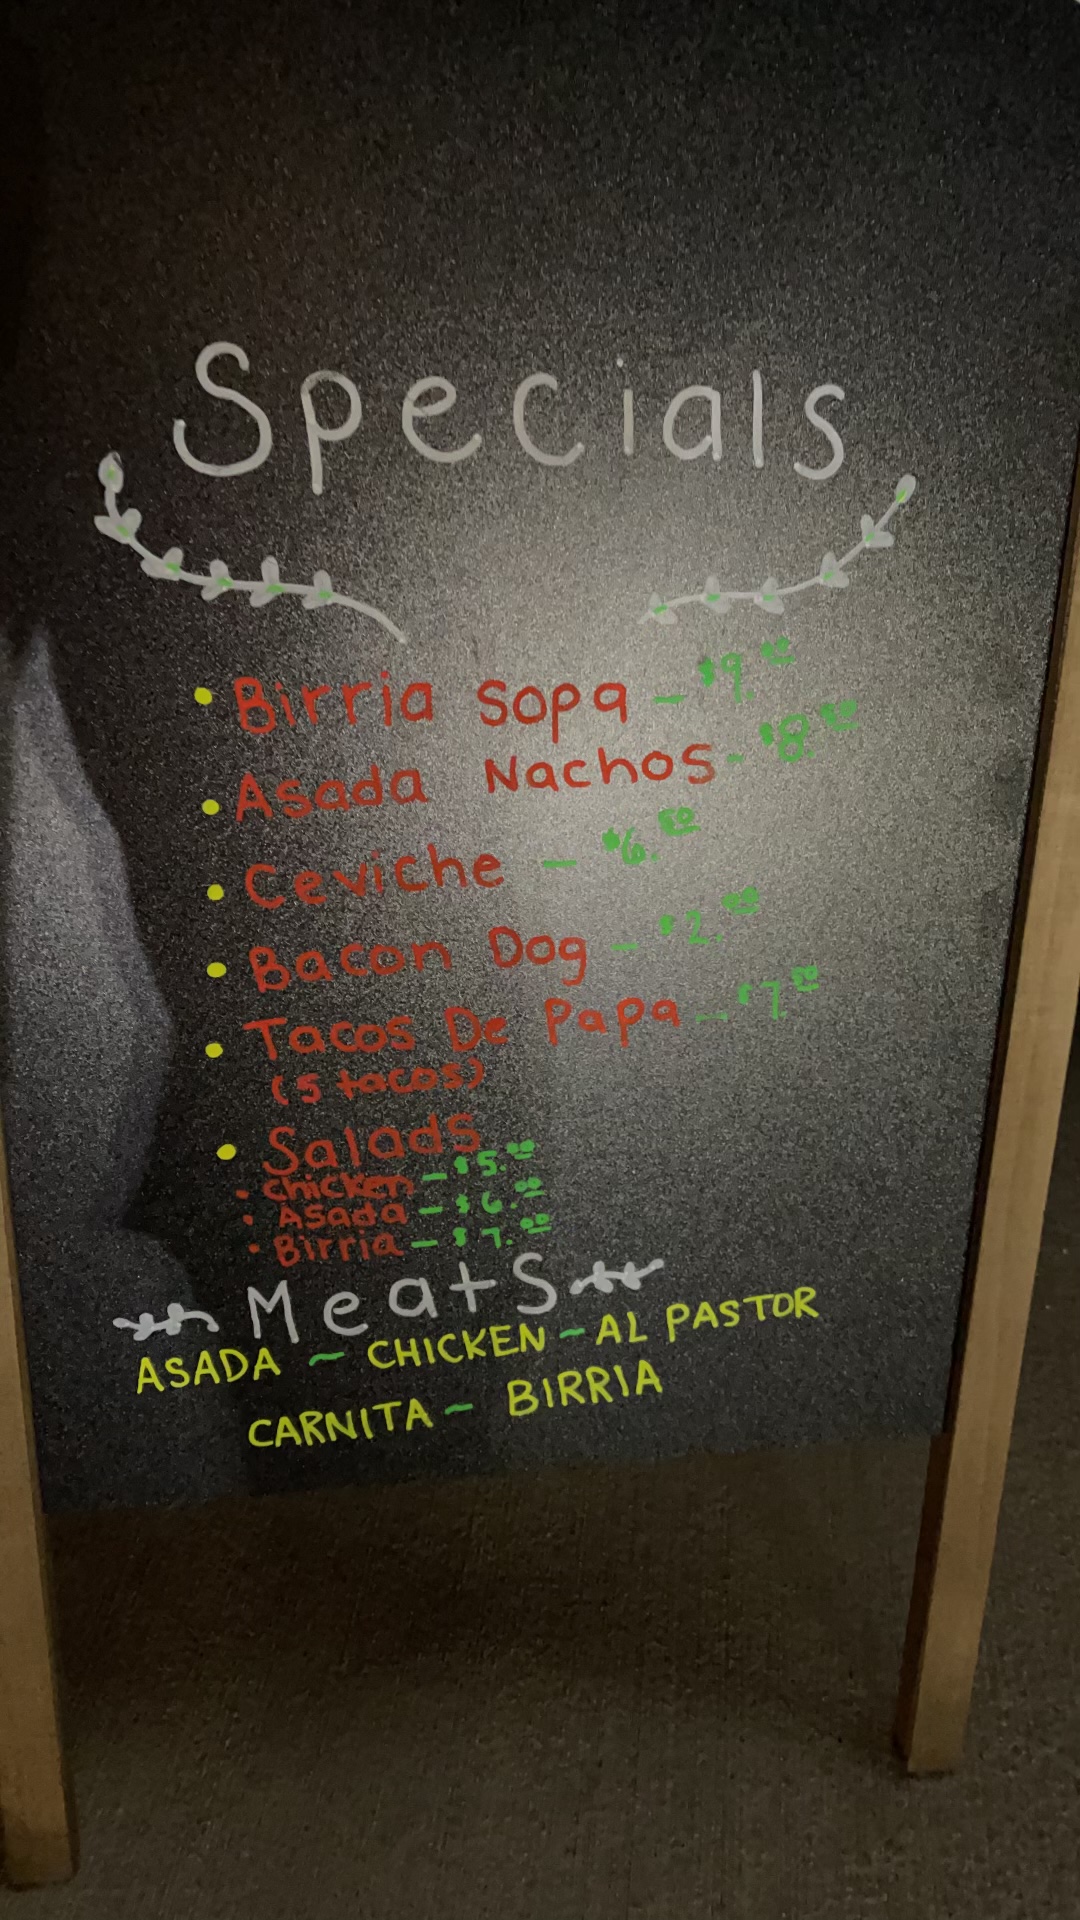 Specials
• Birria Sopa - $9.00
• Asada Nachos - $8.50
• Ceviche - $6.50
• Bacon Dog - $2.00
• Tacos De Papa - $7.50
(5 tacos)
• Salads
• Chicken - $5.00
• Asada - $6.00
• Birria - $7.00
Meats
ASADA ~ CHICKEN ~ AL PASTOR
CARNITA ~ BIRRIA